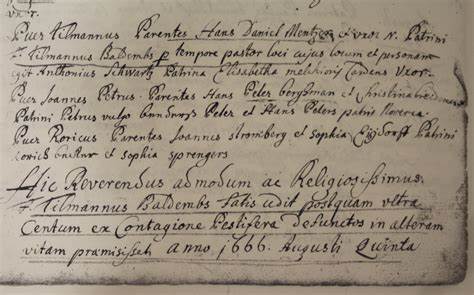 uxor.
Puer Tilmannus Parentes Hans Daniel Mentzer et uxor N. Patrini
Tilmannus Baldembs p tempore pastor loci cujus locum et personam
egit Anthonius Schwartz Patrina Elisabetha melchiors Cardens Uxor.
Puer Joannes Petrus. Parentes Hans Peter bergsman et Christina
Patrini Petrus vulgo Peter et Hans Peters patris
Puer Roricus Parentes Joannes stromberg et Sophia Patrini
Rorich et Sophia sprengers
Hic Reverendus admodum ac Religiosissimus
Tilmannus Baldembs fatis cedit postquam ultra
Centum ex Contagione Pestifera defunctos in alteram
vitam praemisisset anno 1666. Augusti Quinta